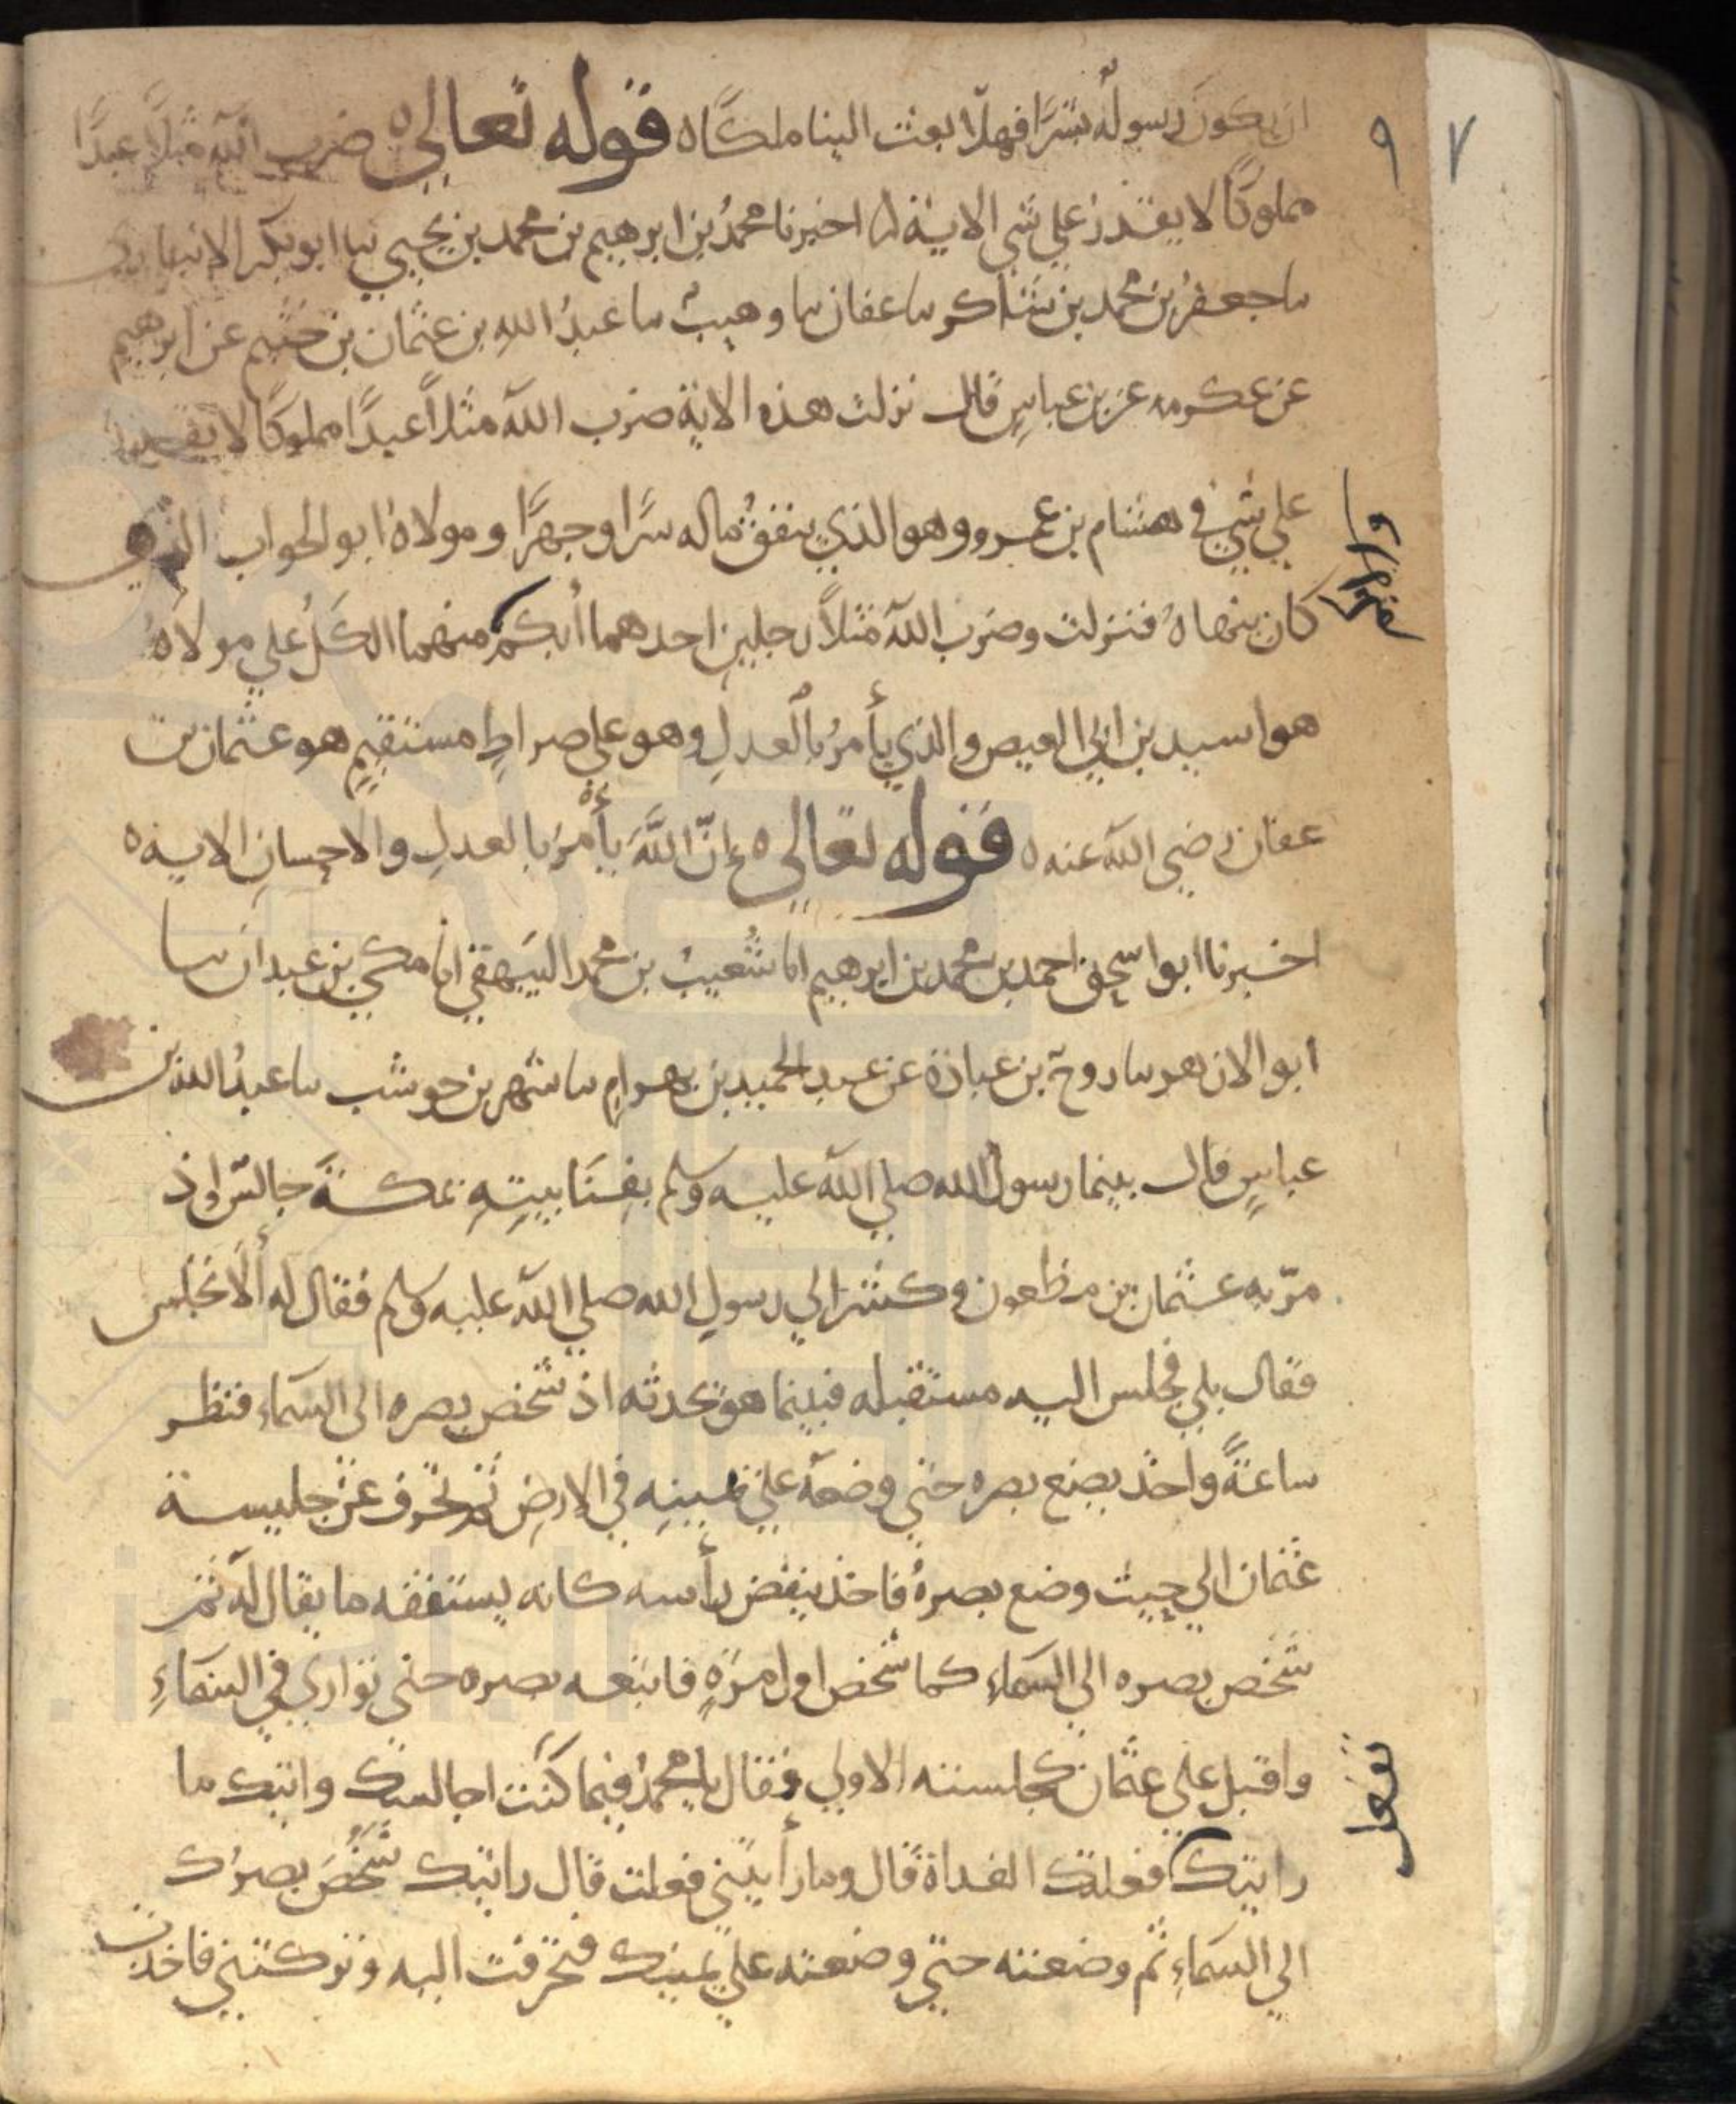 ٩٧
ان يكون رسوله بشرًا فهلا بعث الينا ملكًا ه قوله تعالى ه ضرب الله مثلًا عبدًا
مملوكًا لا يقدر على شي الاية ه اخبرنا محمدُ بن ابرهيم بن محمد بن يحيي نبا ابو بكر الانباري
سا جعفرُ بن محمد بن شاكر سا عفان سا وهيبٌ سا عبدُ اللهِ بن عثمان بن خثيم عن ابرهيم
عن عكرمه عن بن عباسٍ قال نزلت هذه الاية ضرب الله مثلاً عبدًا مملوكًا لا يقدر
علي شيٍ في هشام بن عمرو وهو الذي ينفقُ ماله سرًا وجهرًا ومولاهُ ابو الحواب الذي
كان ينهاهُ فنزلت وضرب الله مثلاً رجلين احدهما أبكم منهما الكَلُ علي مولاهُ
هو اسيد بن ابي العيص والذي يأمرُ بالعدلِ وهو علي صراطٍ مستقيمٍ هو عثمان بن
عفان رضي الله عنه ه قوله تعالى ه إنّ اللهَ يأمرُ بالعدلِ والاحسانِ الايه ه
اخبرنا ابو اسحق احمد بن محمد بن ابرهيم انا شُعيبُ بن محمد البيهقي انا مكي بن عبدان سا
ابو الازهر سا روح بن عبادة عن عبد الحميد بن بهرامٍ سا شهر بن حوشب سا عبدُ الله بن
عباسٍ قال بينما رسولُ الله صلي الله عليه وسلم بفِنَا بيتِهِ بمكةَ جالسٌ إذ
مرّ به عثمان بن مظعون وكشر الي رسولِ الله صلي الله عليه وسلم فقال له ألَا تجلس
فقال بلي فجلس اليه مستقبله فبينما هو يحدثه اذ شخص بصره الى السماء فنظر
ساعةً واخذ يضع بصره حتي وضعهُ علي يمينِهِ في الارضِ ثم تحرف عن جليسة
عثمان الي حيث وضع بصرهُ فاخذ ينغض رأسه كانه يستفقه ما يقال له ثم
شَخَص بصره الي السماءِ كما شخص اول مرةٍ فاتبعه بصره حتى تواري في السماءِ
واقبل علي عثمان كجلسته الاولي فقال يا محمدُ فيما كنت اجالسك واتيك ما
رايتك فعلتك الغداة قال وما رأيتني فعلت قال رايتك شَخَصَ بصرُك
الي السماءِ ثم وضعته حتي وضعته علي يمينك فتحرفت اليه وتركتني فاخذت
تفعل